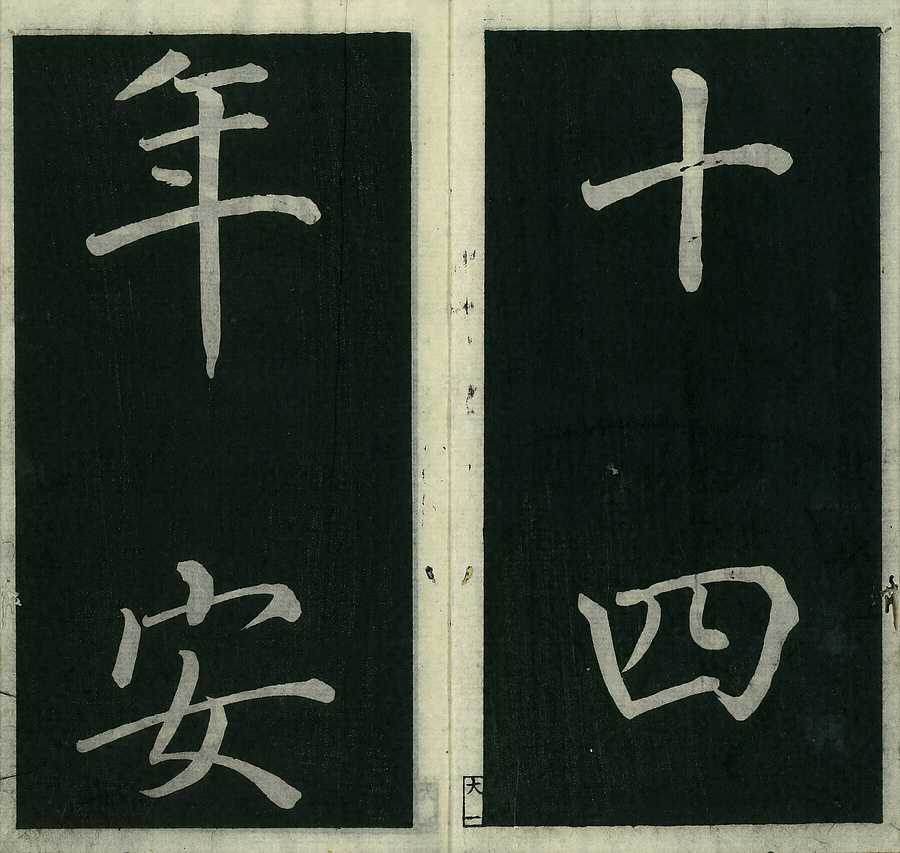 十四
年安
大一